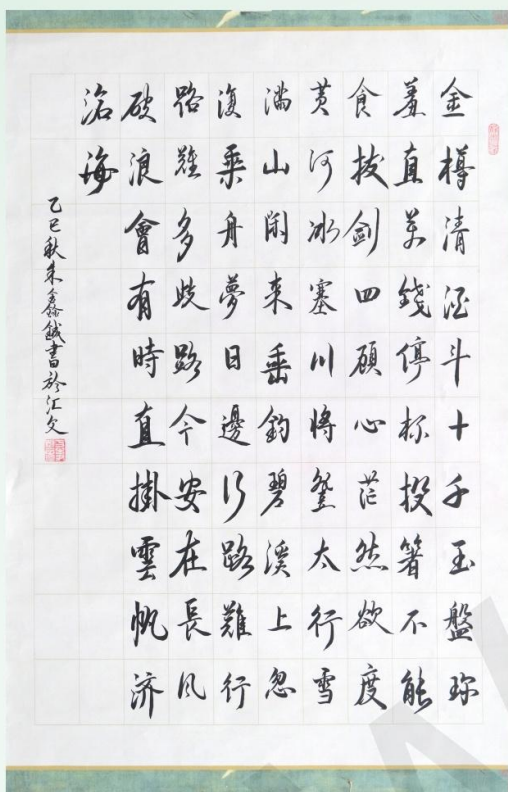 金樽清酒斗十千玉盤珍
羞直萬錢停杯投箸不能
食拔劍四顧心茫然欲度
黄河冰塞川將登太行雪
滿山閑来垂釣碧溪上忽
復乘舟夢日邊行路難行
路難多歧路今安在長风
破浪會有時直掛雲帆济
滄海
乙巳秋朱鑫書於江文